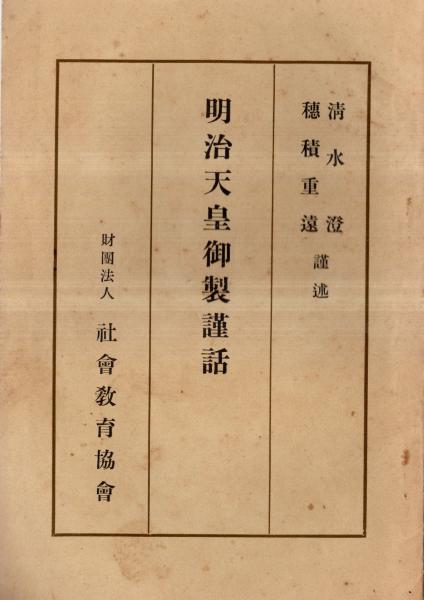 清水澄
穗積重遠
謹述
明治天皇御製謹話
財團法人
社會敎育協會